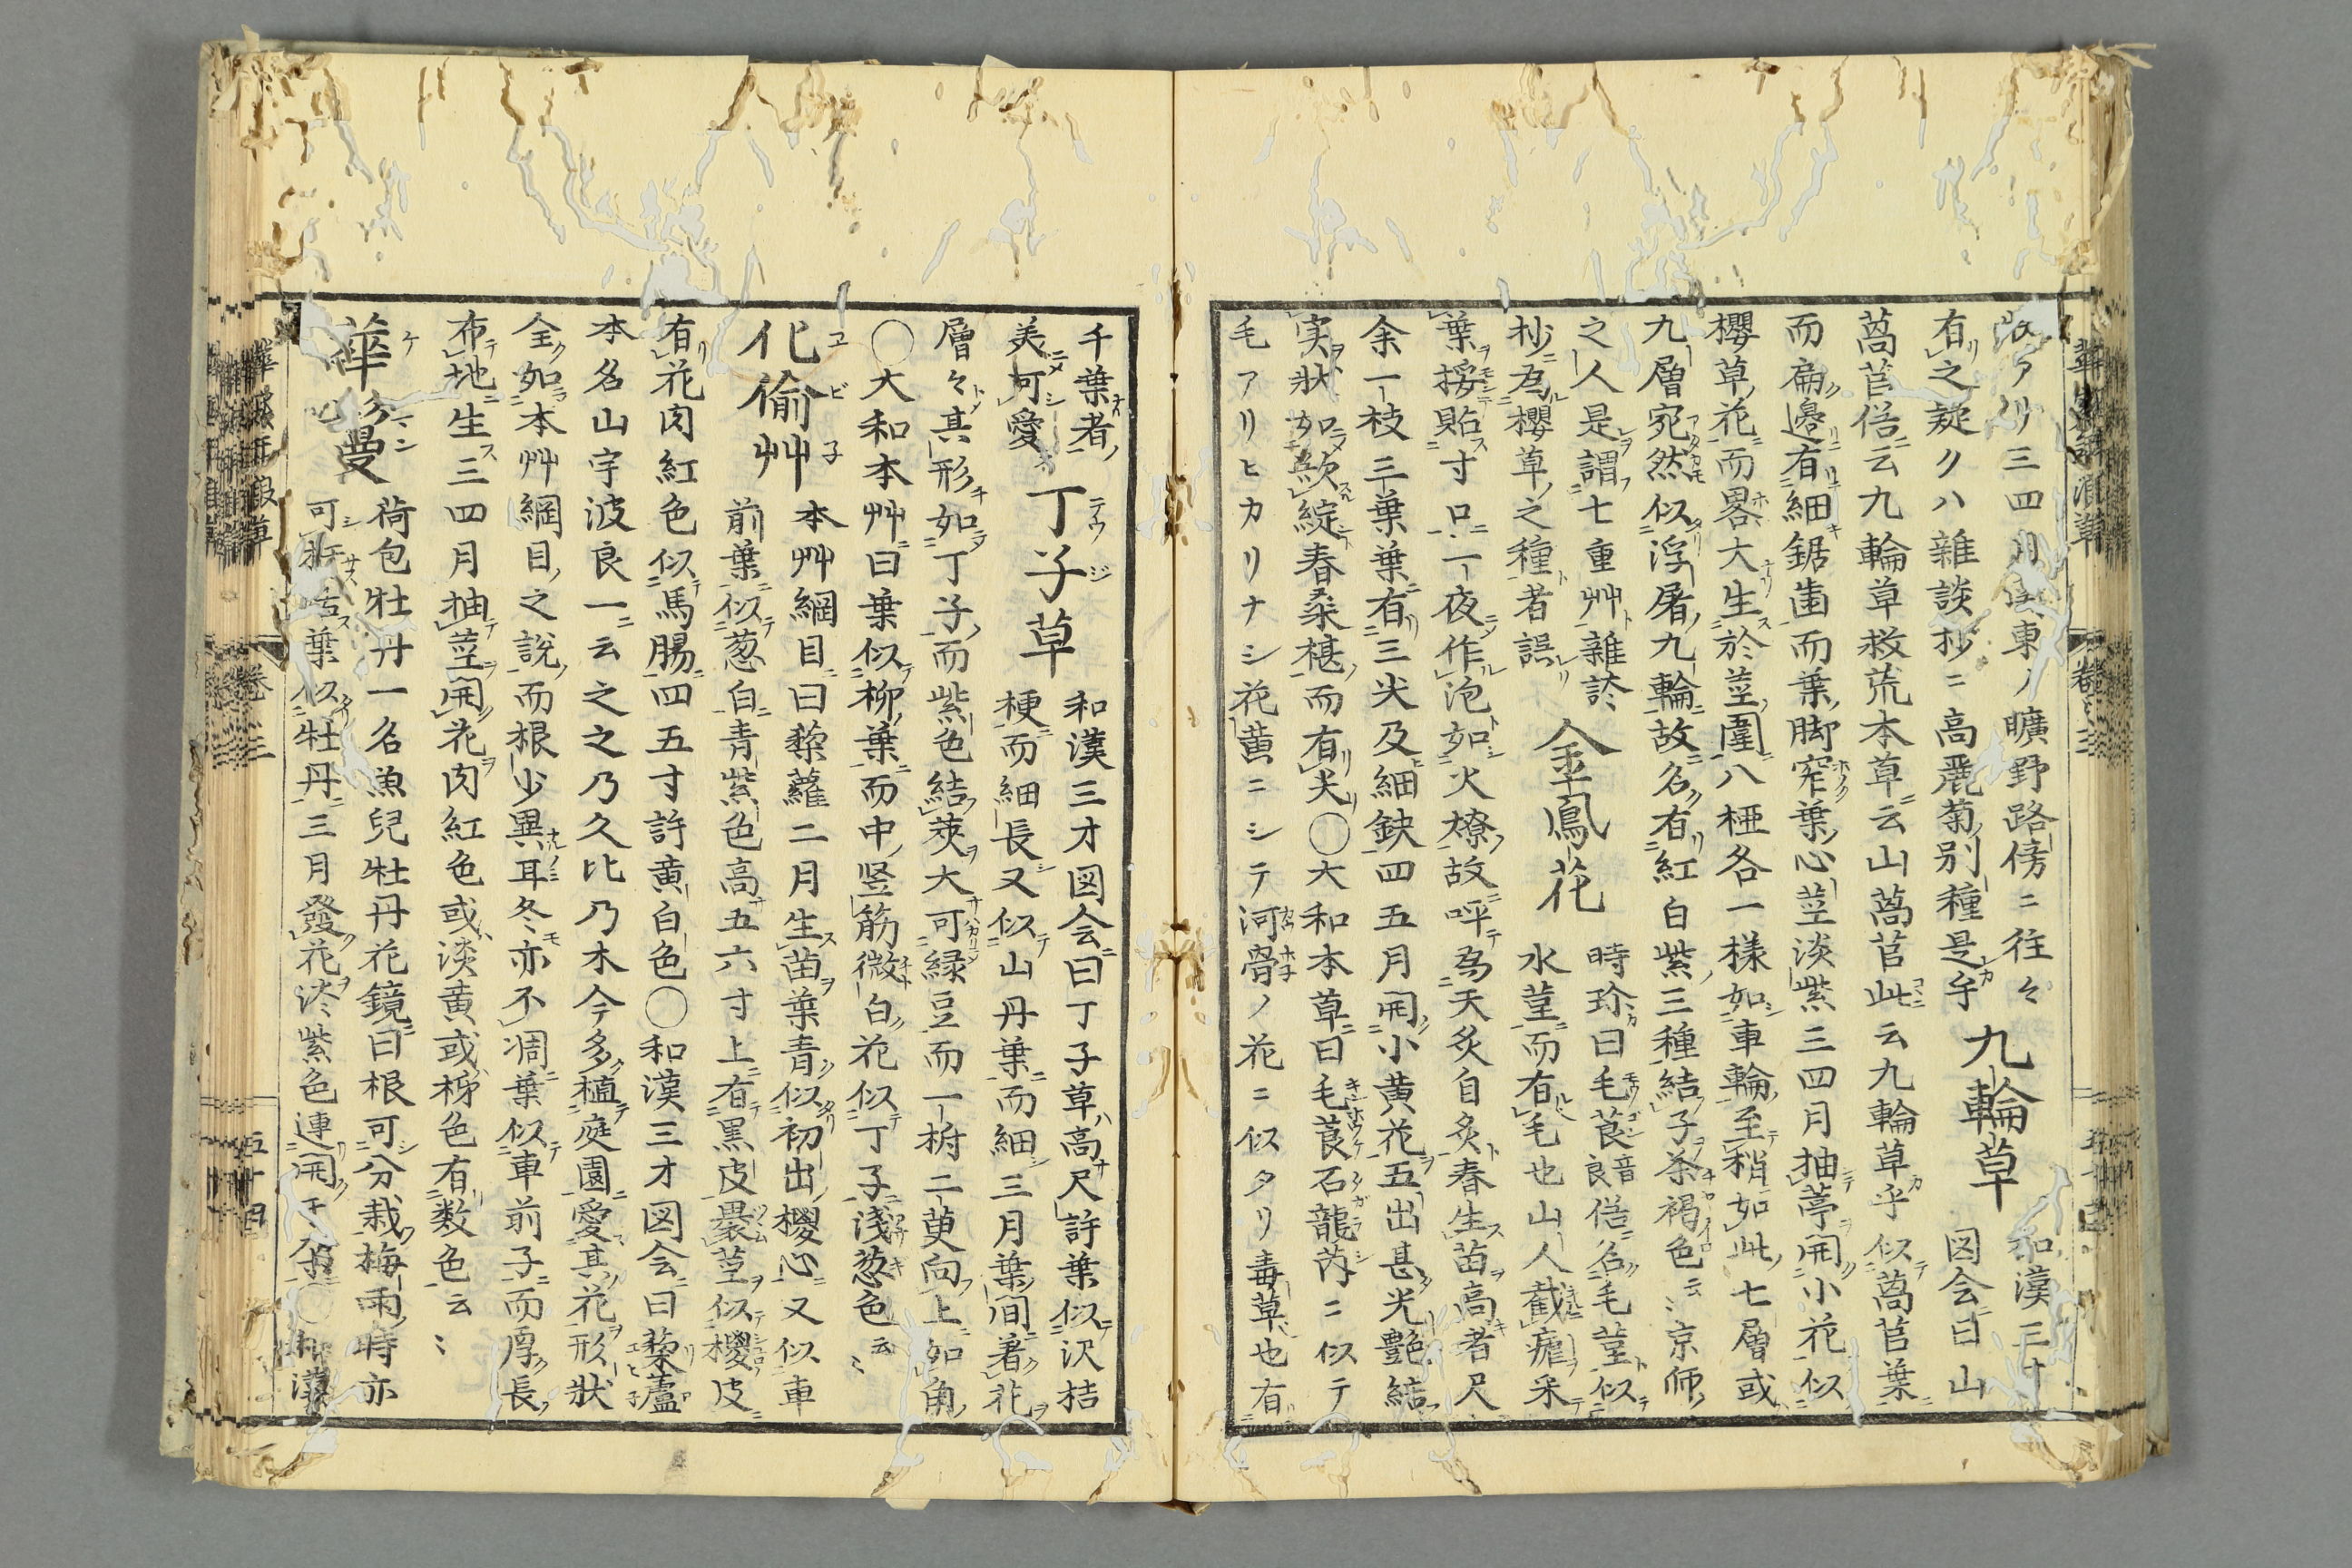 アリ三四月関東ノ曠野路傍ニ往々
有之疑クハ雜談抄ニ高麗菊別種是乎
九輪草
和漢三才
図会曰山
萵苣俗云九輪草救荒本草云山萵苣此云九輪草乎似萵苣葉
而扁邊有細鋸歯而葉脚窄葉心莖淡紫三四月抽葶開小花似
櫻草花而畧大生於莖圍八椏各一様如車輪至稍如此七層或
九層宛然似浮屠九輪故名有紅白紫三種結子茶褐色云〻京師
之人是謂七重艸雜談
抄為櫻草之種者誤
金鳳花
時珍曰毛茛音良俗名毛堇似
水堇而有毛也山人截瘧采
葉挼貼寸口一夜作泡如火燎故呼為天灸自灸春生苗高者尺
余一枝三葉葉有三尖及細缺四五月開小黄花五出甚光艶結
実狀如欲綻春桑椹而有尖〇大和本草曰毛茛石龍芮ニ似テ
毛アリヒカリナシ花黄ニシテ河骨ノ花ニ似タリ毒草也有
千葉者
美可愛
丁子草
和漢三才図会曰丁子草高尺許葉似沢桔
梗而細長又似山丹葉而細三月葉間着花
層々其形如丁子而紫色結莢大可緑豆而一柎二莢向上如角
〇大和本艸曰葉似柳葉而中竖筋微白花似丁子淺葱色云〻
化偷艸
本艸綱目曰藜蘿二月生苗葉青似初出椶心又似車
前葉似葱白青紫色高五六寸上有黒皮裹莖似椶皮
有花肉紅色似馬腸四五寸許黄白色〇和漢三才図会曰藜蘆
本名山宇波良一云之之乃久比乃木今多植庭園愛其花形狀
全如本艸綱目之説而根少異耳冬亦不凋葉似車前子而厚長
布地生三四月抽莖開花肉紅色或淡黄或柹色有数色云〻
華鬘
荷包牡丹一名魚兒牡丹花鏡曰根可分栽梅雨時亦
可葉似牡丹三月發花淡紫色連開〇和漢
卷三
五十四